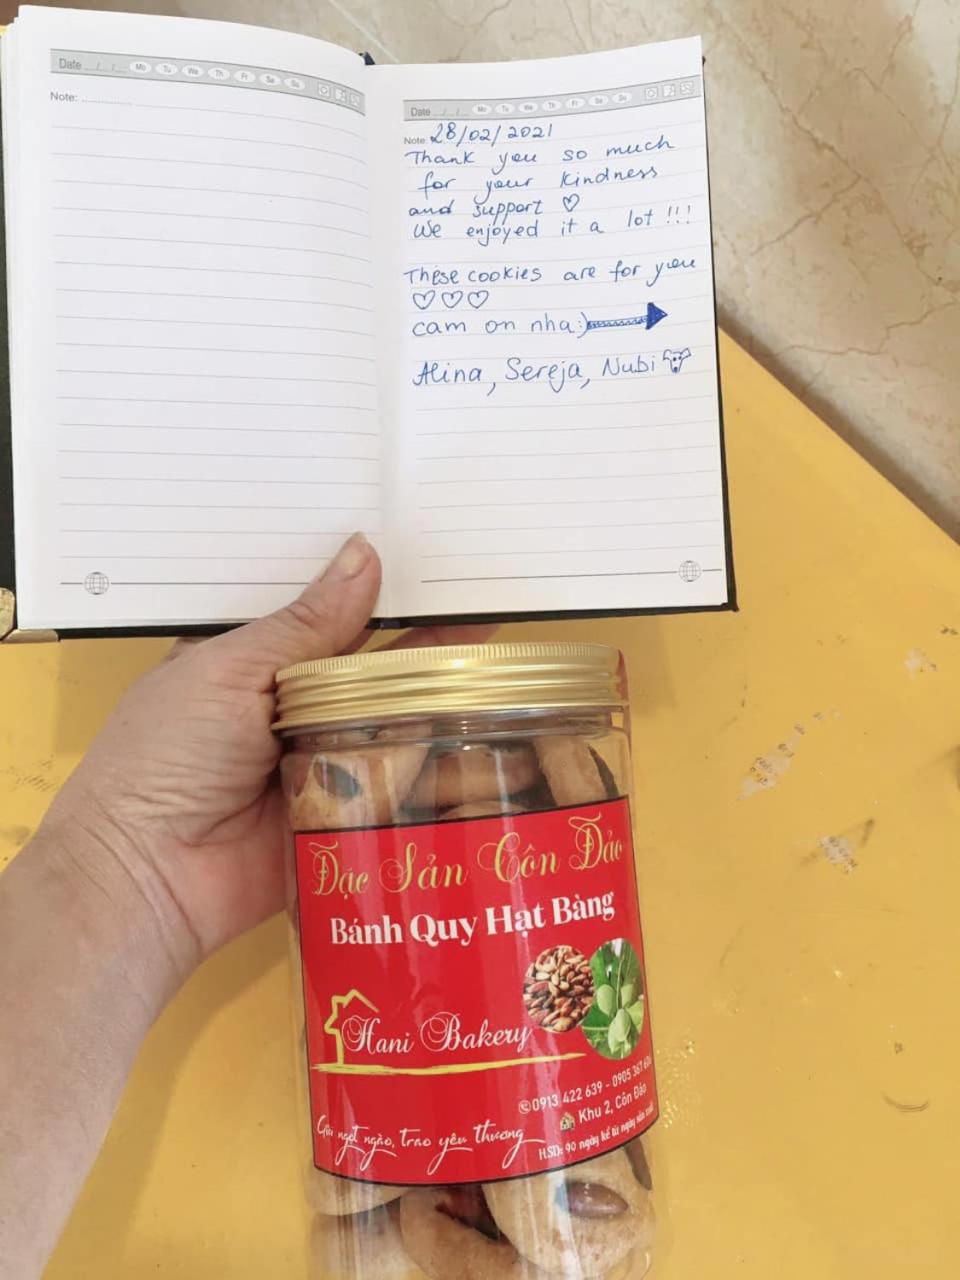 Date .../.../... Mo Tu We Th Fr Sa Su
Note: ..............
Date .../.../... Mo Tu We Th Fr Sa Su
Note: 28/02/2021
Thank you so much
for your kindness
and support ♡
We enjoyed it a lot !!!
These cookies are for you
♡♡♡
cam on nha:)
Alina, Sereja, Nubi
Đặc Sản Côn Đảo
Bánh Quy Hạt Bàng
Hani Bakery
0913 422 639 - 0905 367
Khu 2, Côn Đảo
HSD: 90 ngày kể từ ngày sản xuất
Gửi ngọt ngào, trao yêu thương